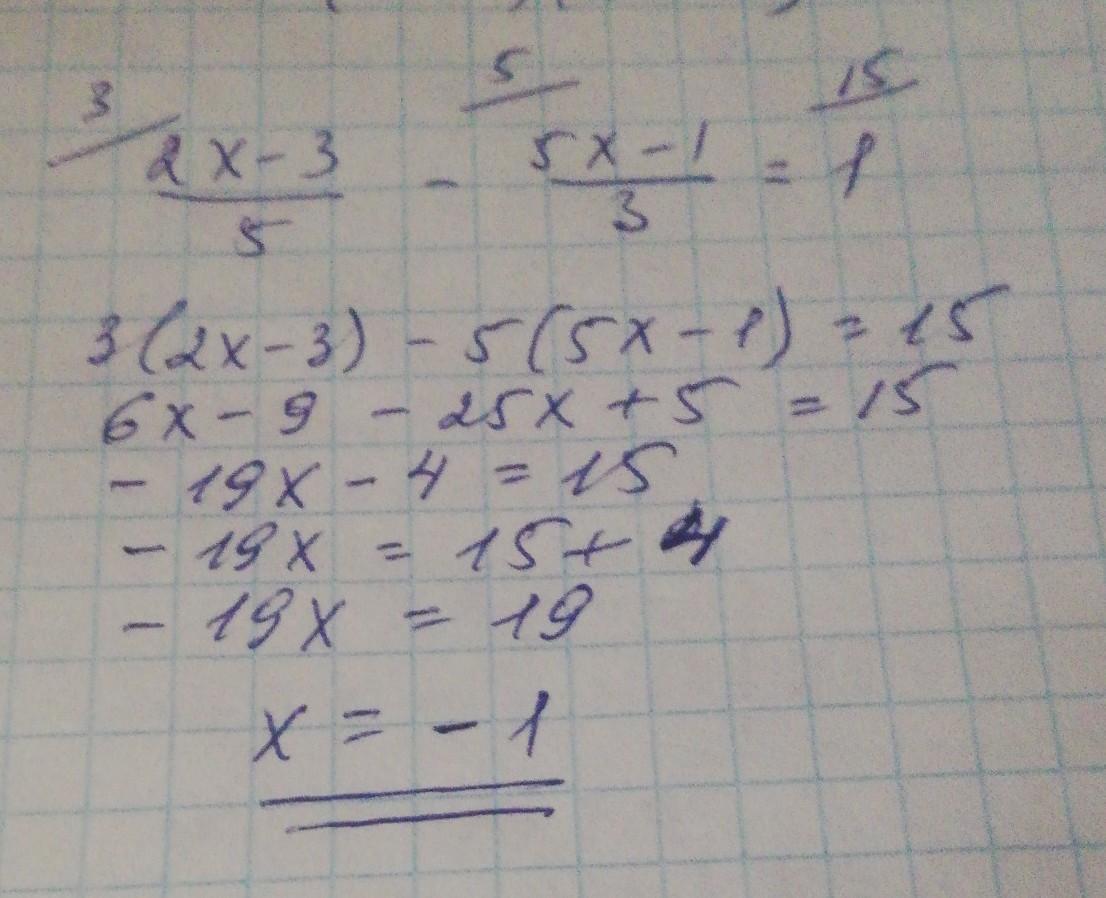 3 5 15
2x-3/5 - 5x-1/3 = 1
3(2x-3) - 5(5x-1) = 15
6x-9 - 25x+5 = 15
- 19x - 4 = 15
- 19x = 15+4
- 19x = 19
x = - 1